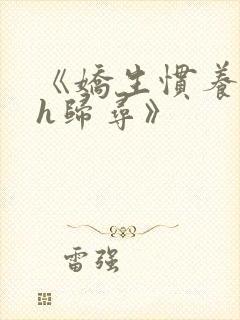 《嬌生慣養
h歸尋》
雷强